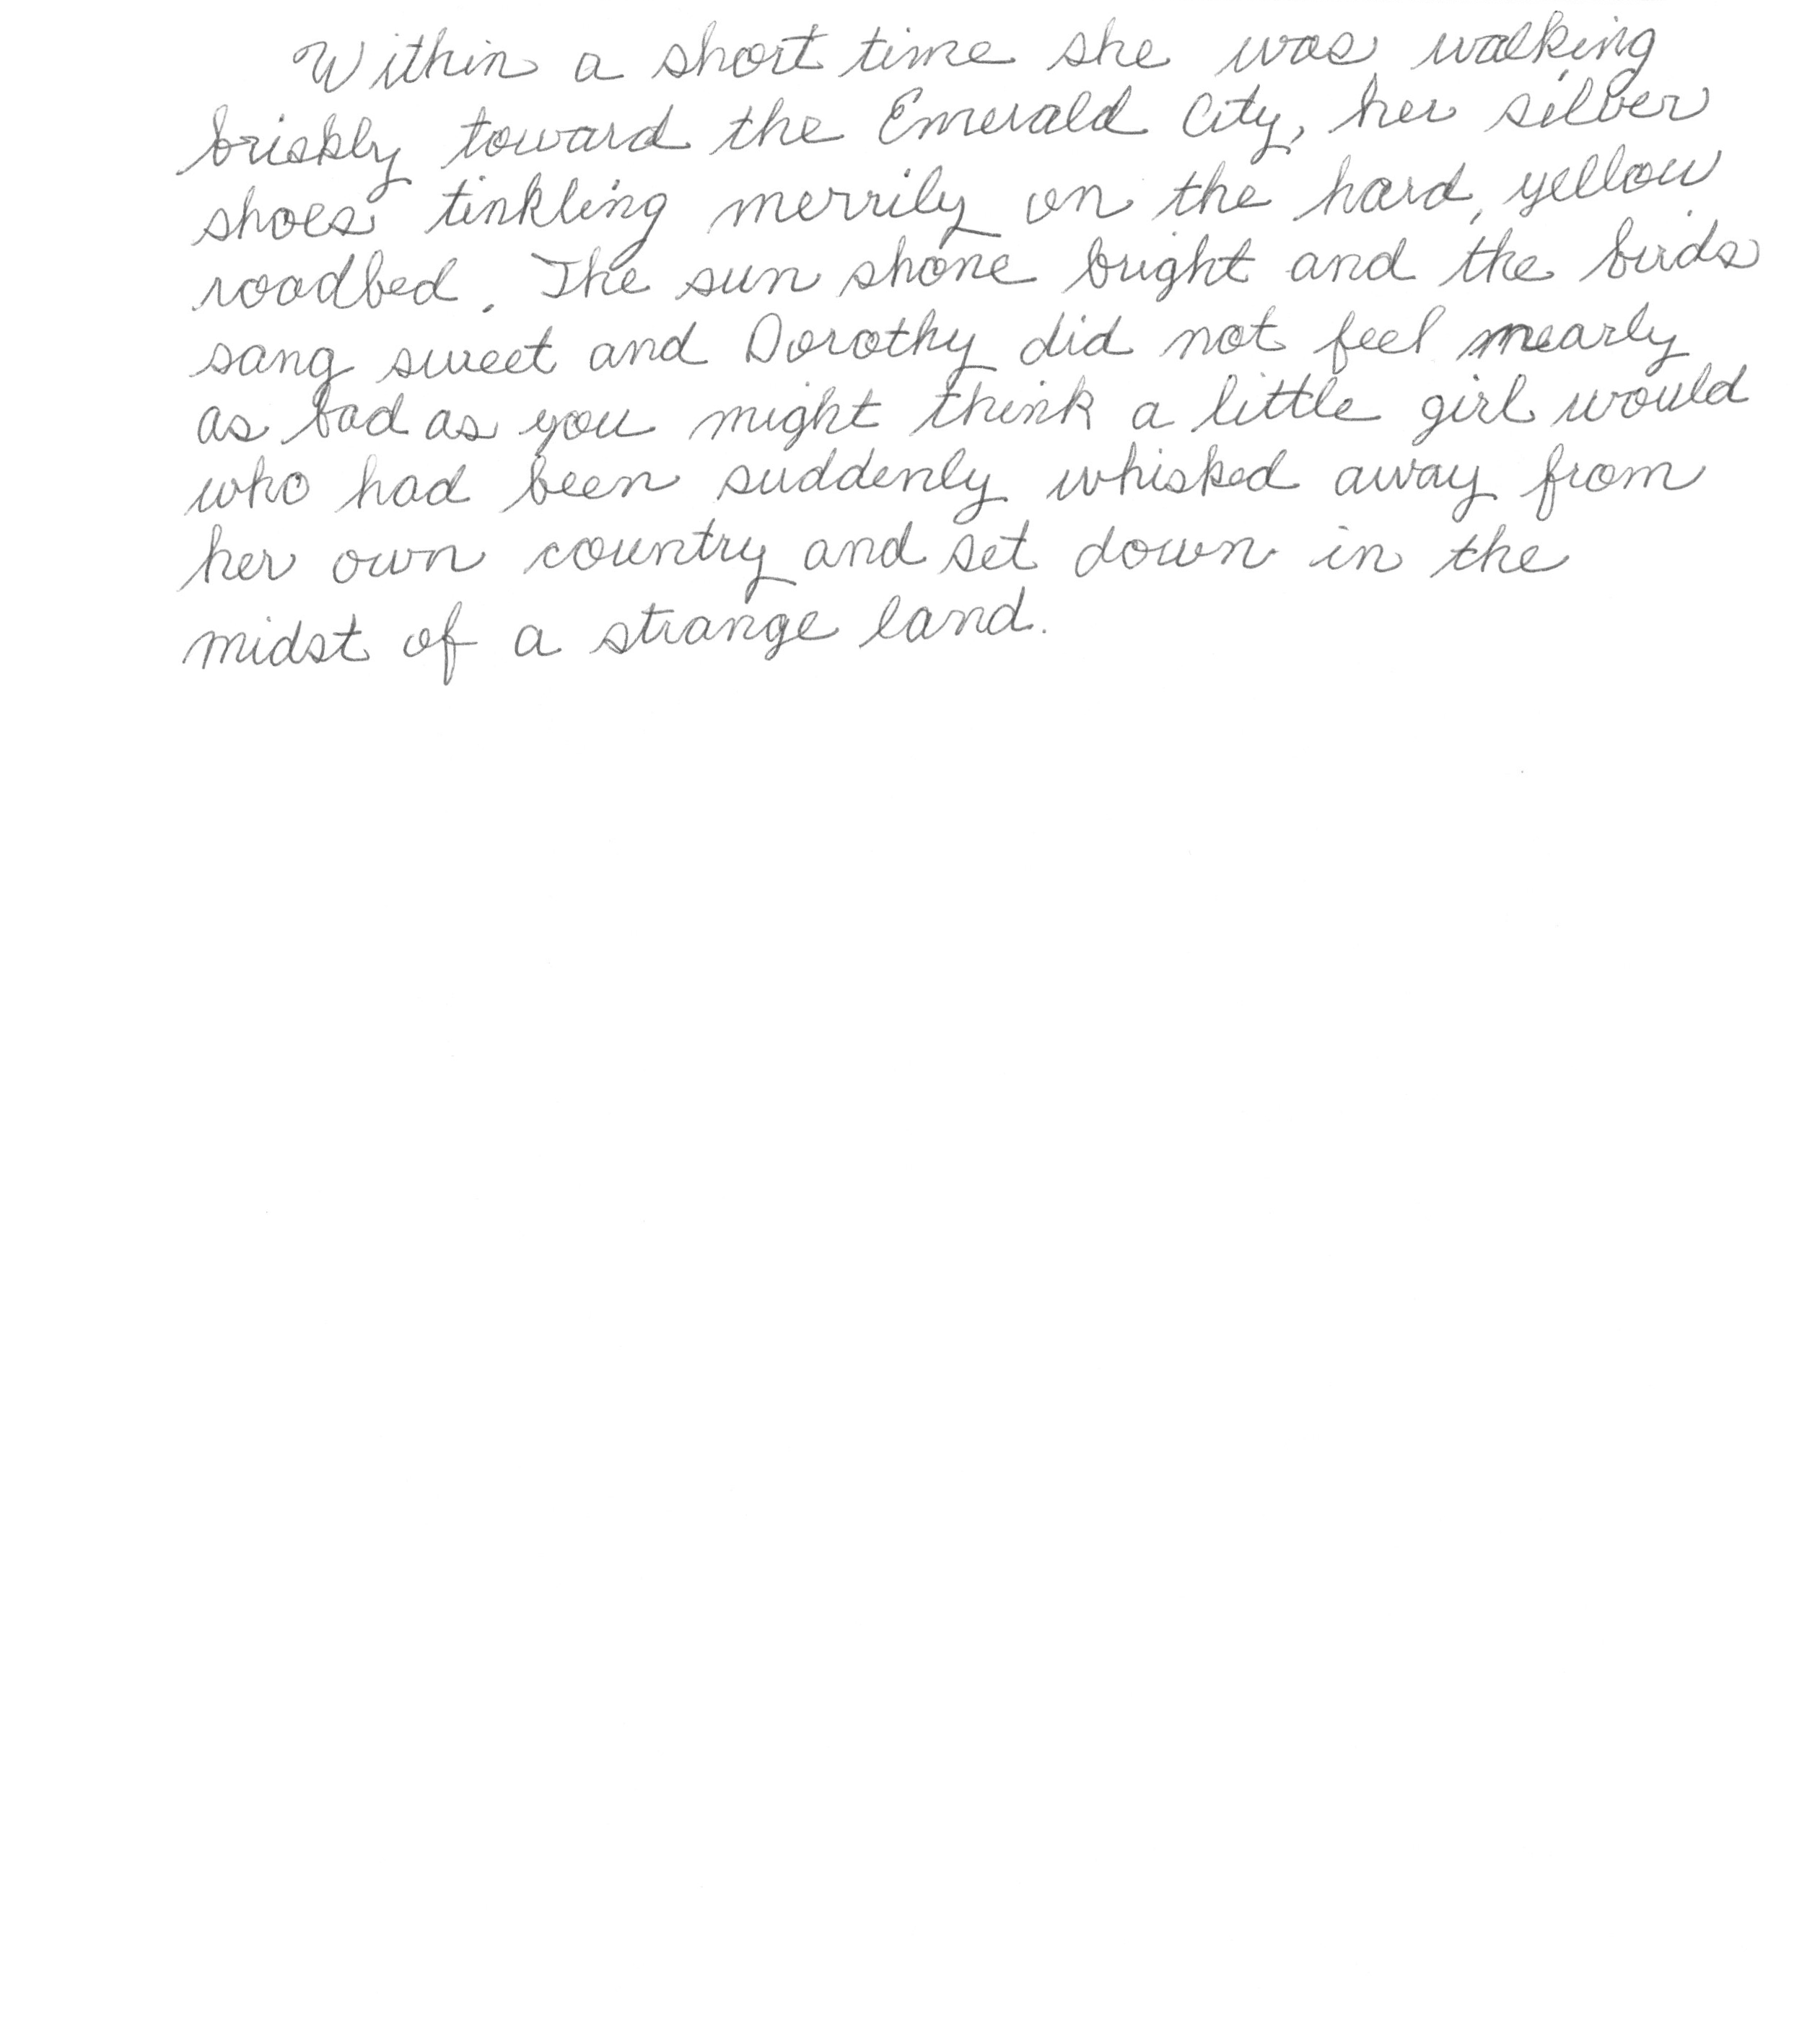 Within a short time she was walking
briskly toward the Emerald City, her silver
shoes tinkling merrily on the hard, yellow
roadbed. The sun shone bright and the birds
sang sweet and Dorothy did not feel nearly
as bad as you might think a little girl would
who had been suddenly whisked away from
her own country and set down in the
midst of a strange land.